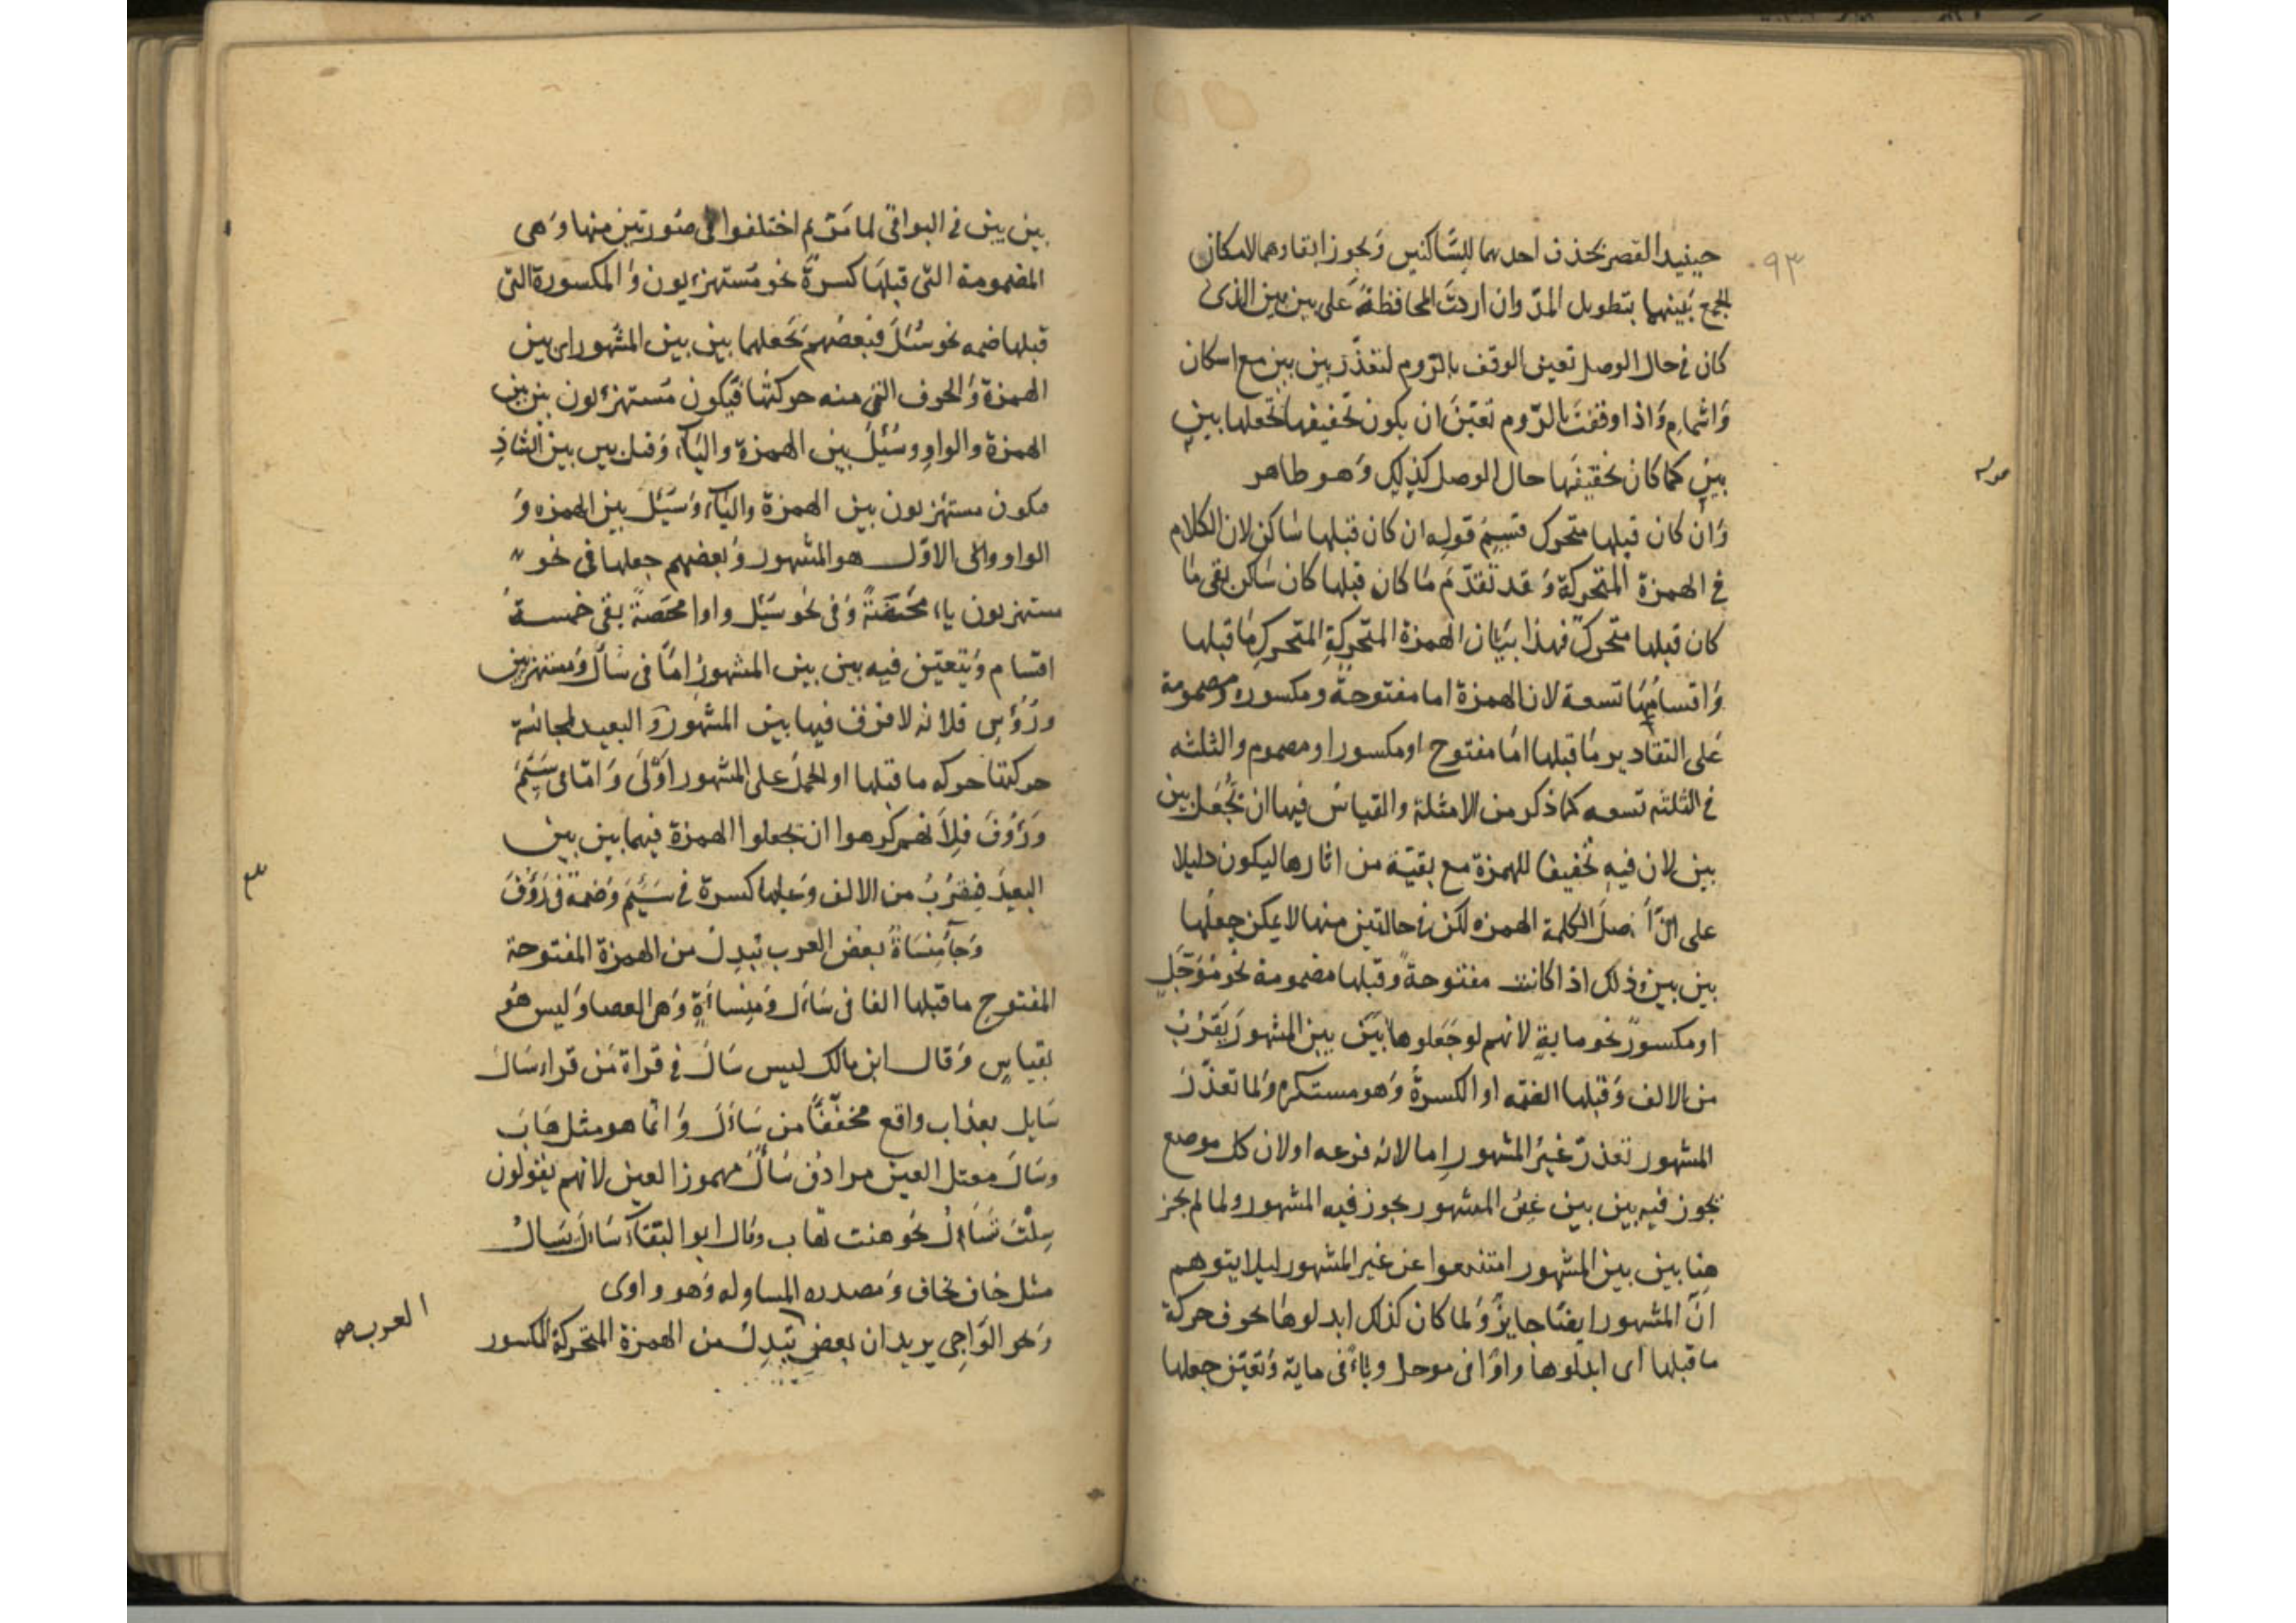 ٩٣
حينيذ القصر بحذف احدهما للسّاكنين وَيجوز ابقاوهما لامكان
الجمع بَينهما بتطويل المدّ وان اردتَ المحافظةَ عَلى بين بين الذى
كان في حال الوصل تعين الوقف بالرّوم لتعذّر بين بين مع اسكان
وَاشمامٍ وَاذا وقفتَ بالرّوم تعيّنَ ان يكون تخفيفها بجعلها بين
بين كما كان تخفيفَها حال الوصل كذلِك وَهو ظاهر
قوله
وَان كان قبلها متحرك قسِيمُ قولِه ان كان قبلها ساكن لان الكلام
في الهمزة المتحركة وَقد تقدّمَ مَا كان قبلها كان سَاكن بقي مَا
كان قبلها متحركٌ فهذا بيَان الهمزة المتحركةِ المتحركِ مَا قبلها
وَاقسامُهَا تسعة لان الهمزة اما مفتوحةٌ ومكسوره ومضمومة
عَلى التقادير ومَا قبلها امّا مفتوح اومكسور اومضموم والثلثه
في الثلثه تسعه كمَا ذكر من الامثلة والقياسُ فيها ان تُجعَل بين
بين لان فيهِ تخفيفا للهمزة مع بقيّة من اثارها ليكون دليلا
على انّ أصلَ الكلمة الهمزه لكن في حالتين منها لا يمكن جعلُها
بين بين وذلك اذا كانت مفتوحةً وقبلها مضمومة نحو مُؤَجَّلٍ
اومكسورٌ نحو مايةٍ لانهم لوجَعَلوها بَيَن بين المشهورَ يَقرُبُ
من الالف وَقبلها الضمّه او الكسرةُ وَهو مستكره وَلما تعذّرَ
المشهور تعذرّ غيرُ المشهورِ إما لانه فرعه اولان كل موضع
يجوز فيه بين بين غيرُ المشهور يجوز فيه المشهور ولما لم يجز
هنا بين بين المشهور امتنعوا عن غير المشهور ليلا يتوهم
انّ المشهور ايضًا جايزٌ وَلما كان كذلك ابدلوهَا بحرف حركة
ماقبلها اى ابدَلوها واوًا فى موجل وياءً في ماية وَتعيّن جعلها
بين بين في البواقي لما مَرّ ثم اختلفوا في صُورتين منها وَهى
المضمومة التي قبلهَا كسرةٌ نحو مُستهزءيون وَالمكسورة التى
قبلها ضمه نحو سُئِلَ فبَعضُهم يَجَعلهما بين بين المشهور اى بين
الهمزة وَالحرف الذي منه حركتها فيكون مُستهزءون بين بين
الهمزة والواوِ وسُئِلَ بين الهمزة واليَآء وَقيل بين بين الشاذِ
فيكون مستهزءون بين الهمزة واليَآء وَسُئِلَ بين الهمزه وَ
الواو والى الاوّل هو المشهور وَبعضهم جعلها فى نحو
مستهزيون ياء محضَةً وَفى نحو سُئِل واوا محضةً بقى خمسةُ
اقسام وَيتعيّن فيه بين بين المشهورُ امّا فى سَأل وَمستهزئين
ورُؤُسٍ فلانه لا فرق فيها بين المشهور وَالبعيد لمجانسة
حركتها حركه ما قبلها او الحملُ على المشهور اوّلَى وَامّا في سَئِمَ
وَرَؤُفَ فِلاَنهم كرهوا ان يجعلوا الهمزة فيهما بين بين
البعيدَ فيَقرُبُ من الالف وَقبلها كسرة في سَئِمَ وَضمة في رَؤُفَ
وَجَآء مِنسَاةُ بعض العرب يُبدِلُ من الهمزة المفتوحة
المفتوح ماقبلها الفا فى سَاءَل وَمِنسأَةٍ وَهى العصا وَليس هُو
بقياسٍ وَقال ابن مالك ليس سَالَ في قراة مَن قراء سَال
سَايل بعذاب واقع مخففًّا من سَاءَلَ وَانما هو مثل هَابَ
وسَالَ معتل العين مرادف سَألَ مهموز العين لانهم يقولون
سِلْتَ تَسَالُ نحو هبت تهاب وقال ابو البقآء سَالَ يَسَالُ
مثل خاف يخاف وَمصدره المساوله وَهو واوى
وَنحو الوَاجِى يريد ان بعض يُبدِلُ من الهمزة المتحركة المكسور
العرب صح